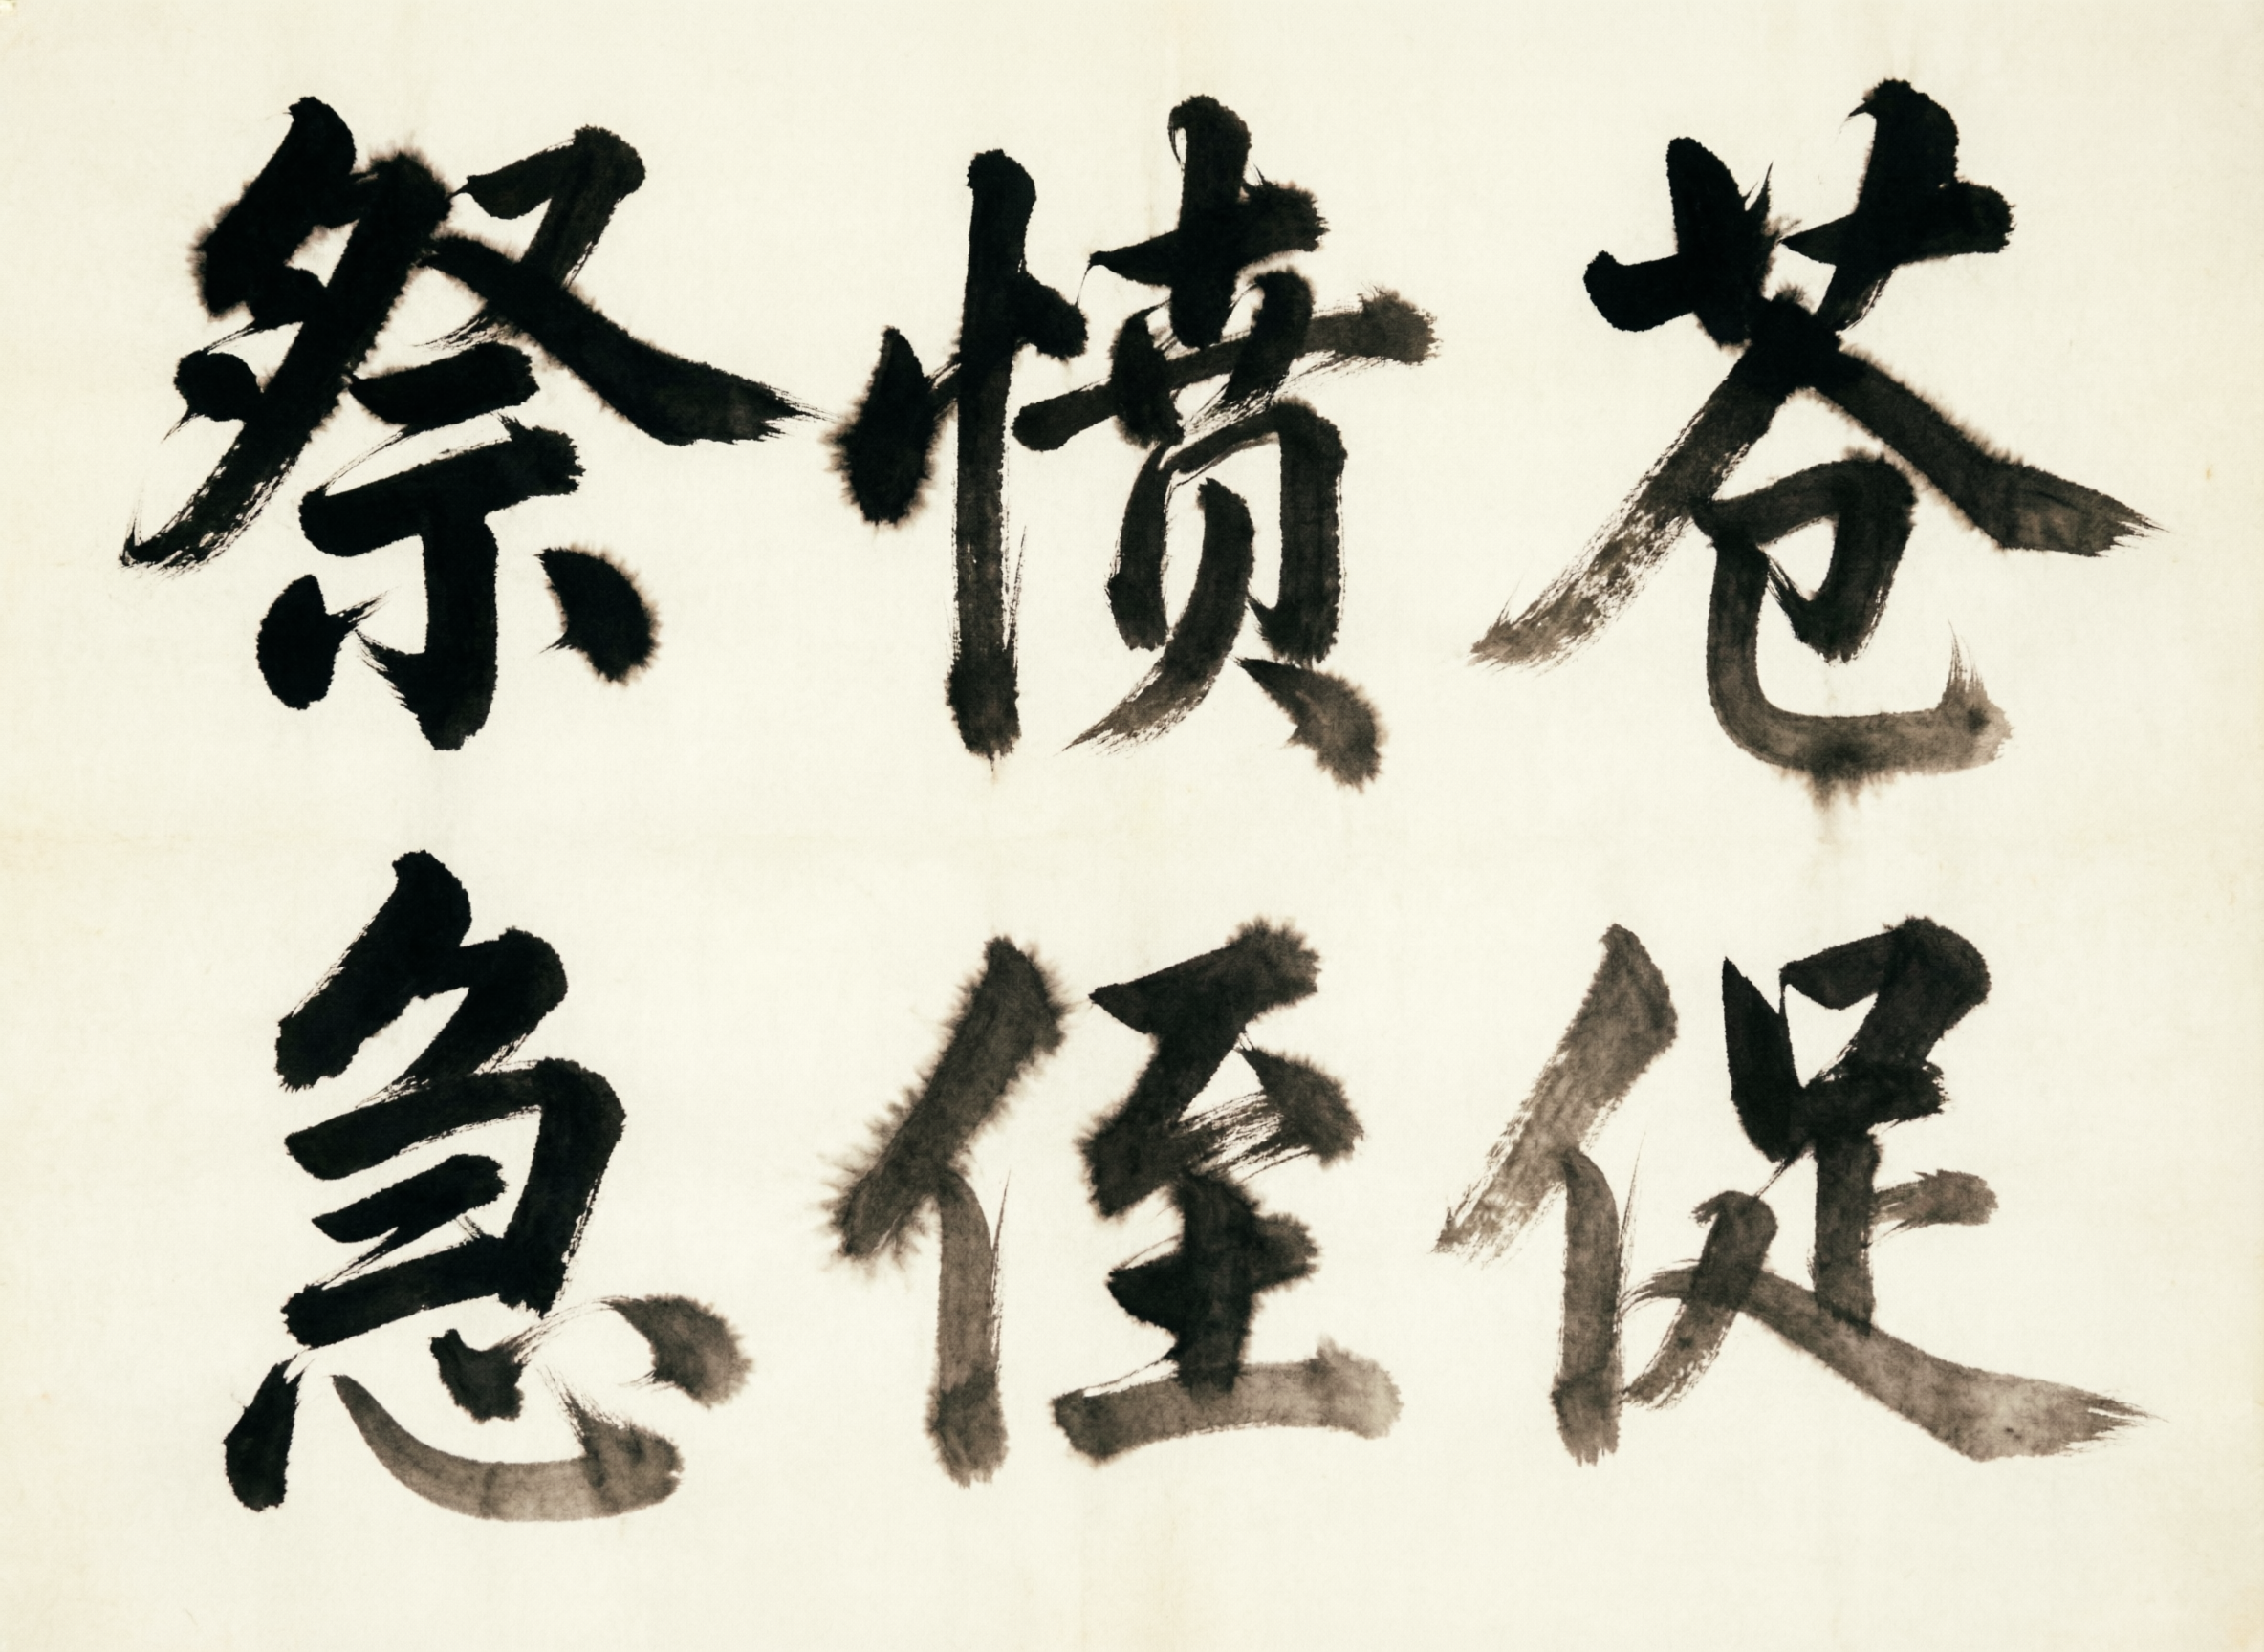 祭愤苍
急侄促